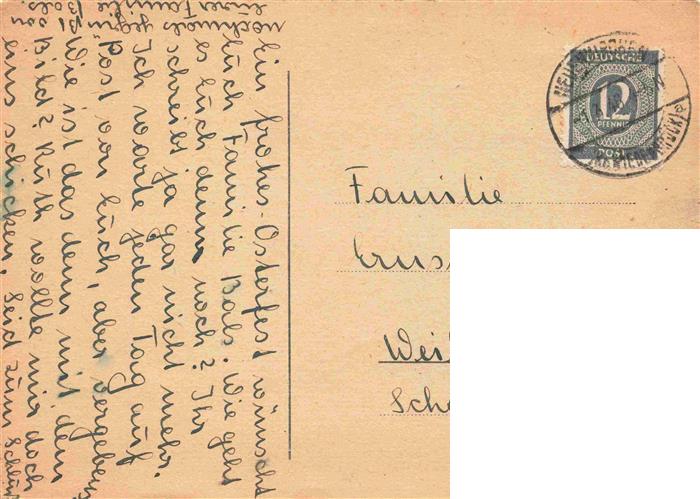 Ein frohes Osterfest wünscht
Euch Familie Bals. Wie geht
es Euch denn noch? Ihr
schreibt ja gar nicht mehr.
Ich warte jeden Tag auf
Post von Euch, aber vergebens
Wie ist das denn mit dem
Bild? Ruth wollte mir doch
eins schicken. Seid zum Schluß
nochmals gegrüßt von
Familie Bals.
DEUTSCHE
12
PFENNIG
POST
Familie